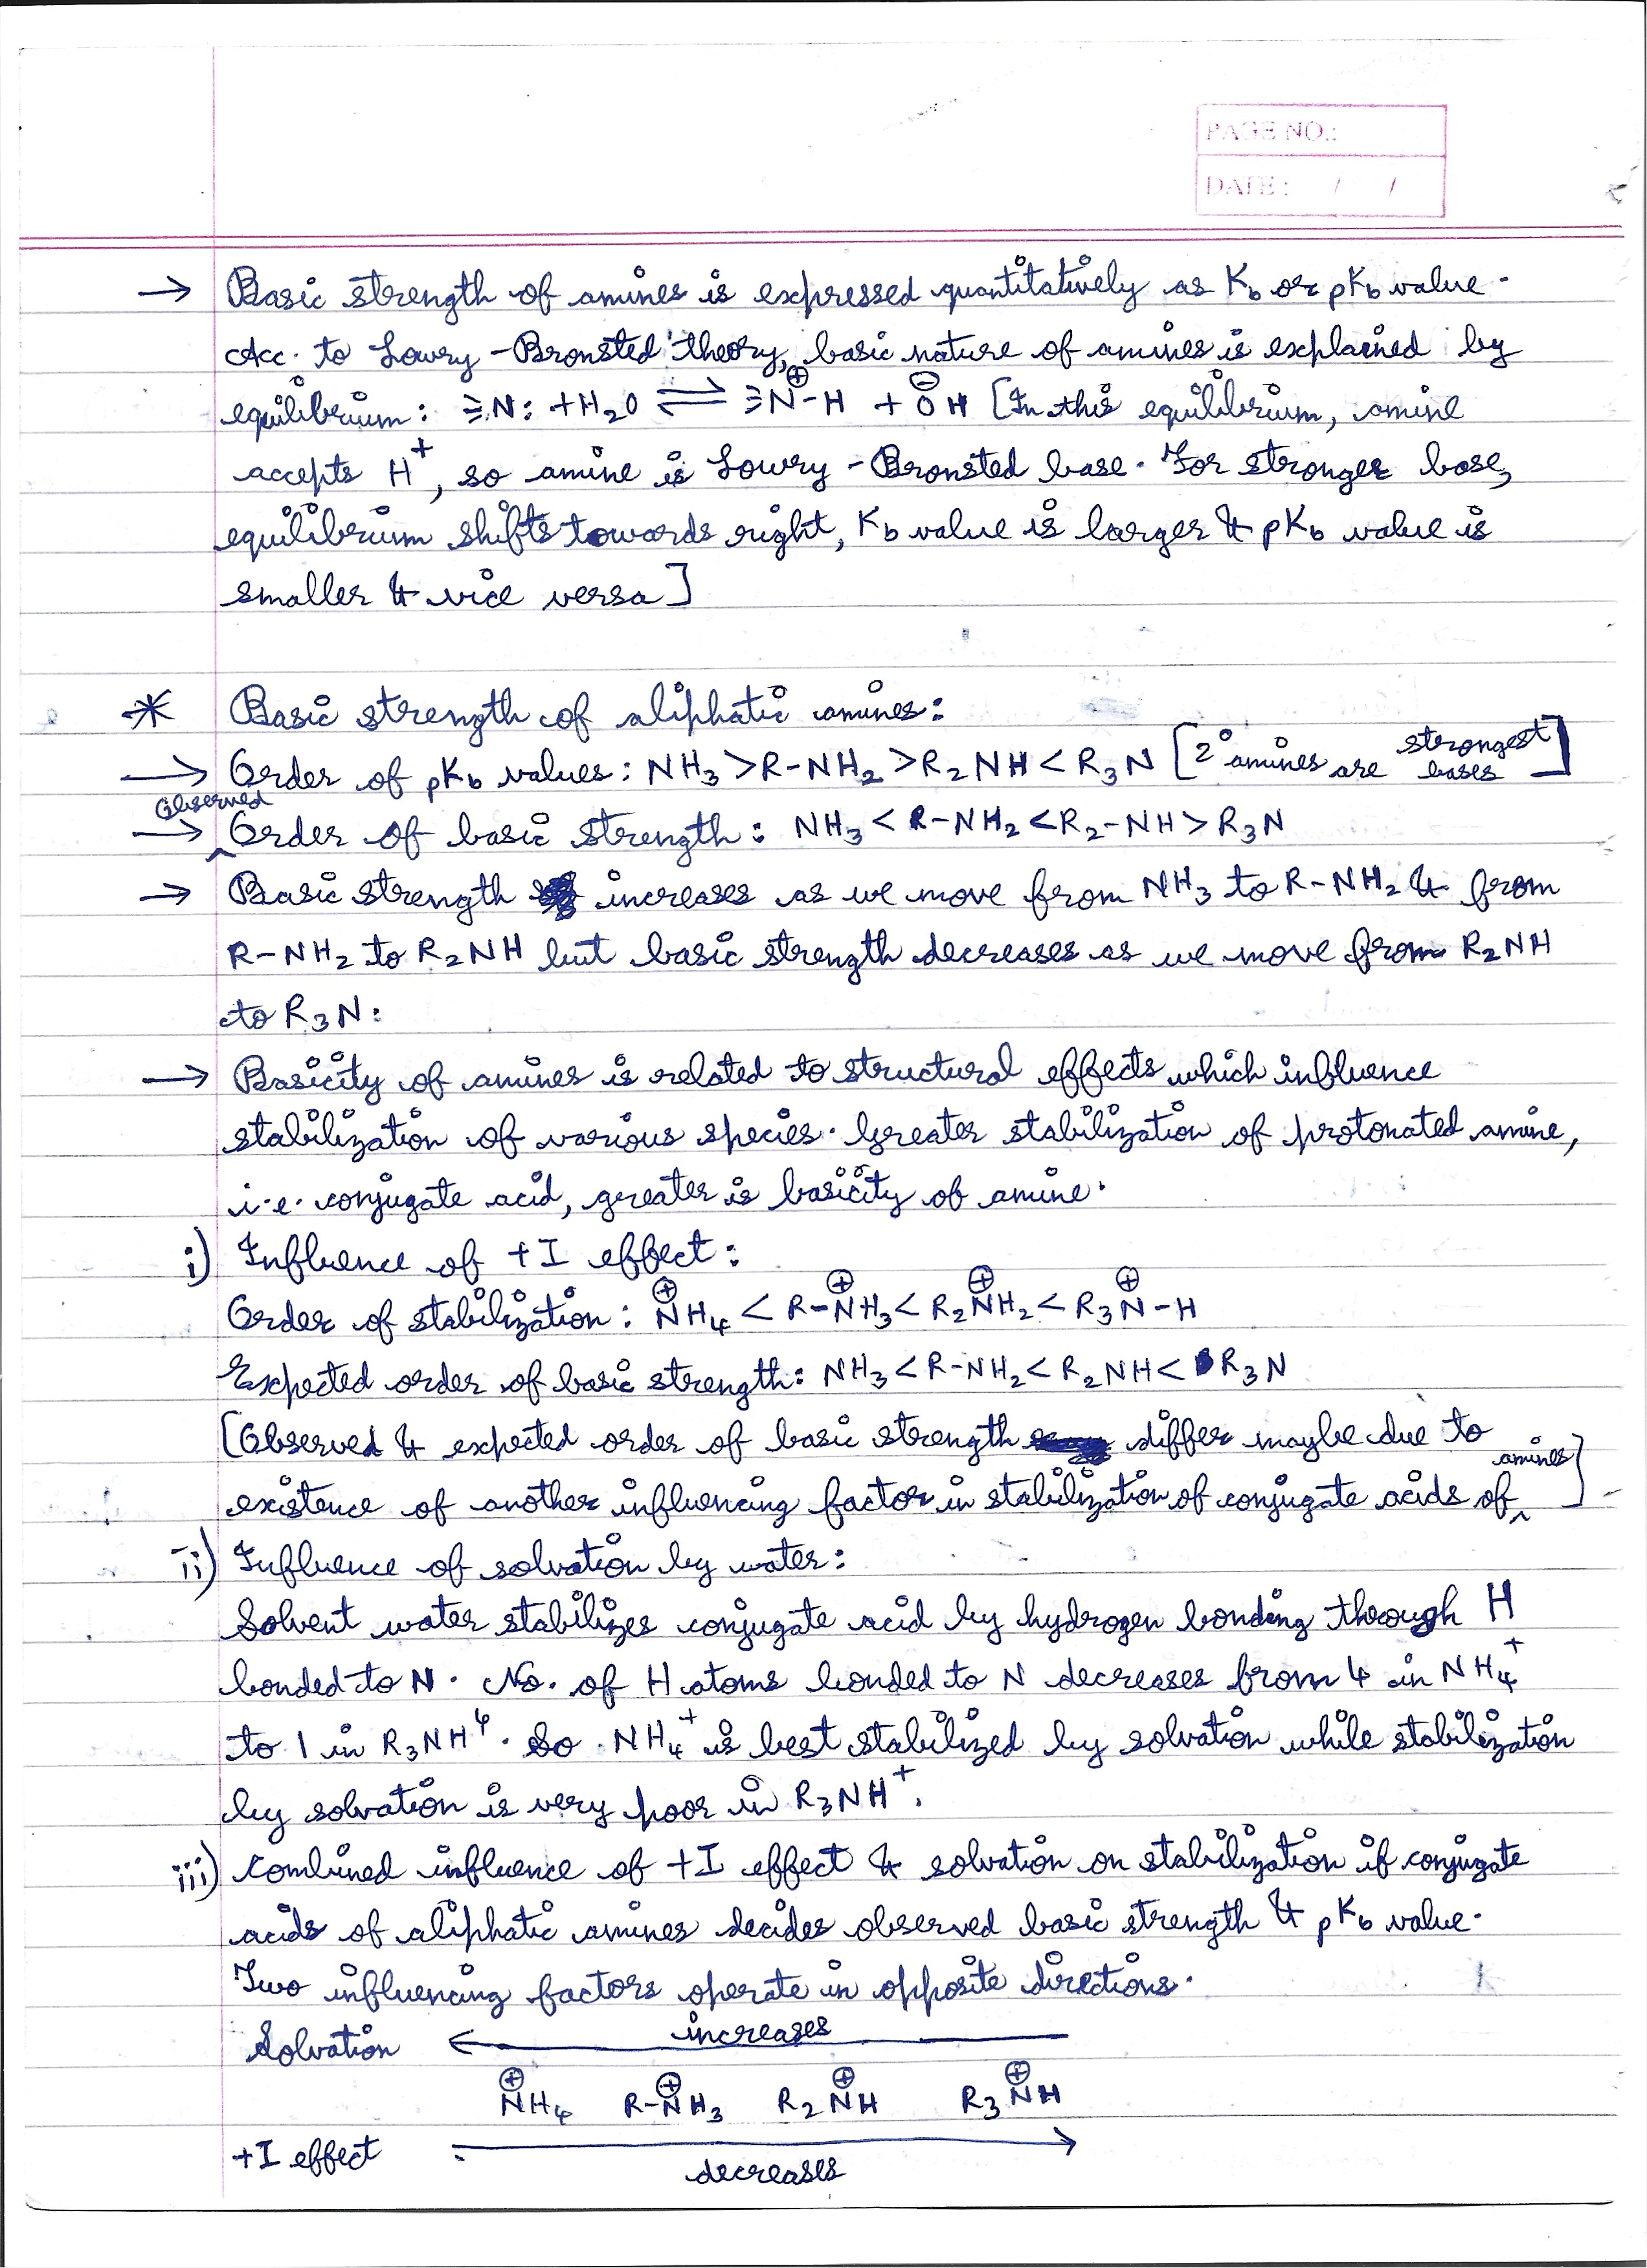 PAGE NO.:
DATE: / /
→ Basic strength of amines is expressed quantitatively as Kb or pKb value.
Acc. to Lowry-Bronsted theory, basic nature of amines is explained by
equilibrium: ≡N: + H₂O ⇌ ≡N⊕-H + ⊖OH [In this equilibrium, amine
accepts H⁺, so amine is Lowry-Bronsted base. For stronger base,
equilibrium shifts towards right, Kb value is larger & pKb value is
smaller & vice versa]
* Basic strength of aliphatic amines:
→ Order of pKb values: NH₃ > R-NH₂ > R₂NH < R₃N [2° amines are strongest bases]
→ Observed Order of basic strength: NH₃ < R-NH₂ < R₂-NH > R₃N
→ Basic strength increases as we move from NH₃ to R-NH₂ & from
R-NH₂ to R₂NH but basic strength decreases as we move from R₂NH
to R₃N:
→ Basicity of amines is related to structural effects which influence
stabilization of various species. Greater stabilization of protonated amine,
i.e. conjugate acid, greater is basicity of amine.
i) Influence of +I effect:
Order of stabilization: N⊕H₄ < R-N⊕H₃ < R₂N⊕H₂ < R₃N⊕-H
Expected order of basic strength: NH₃ < R-NH₂ < R₂NH < R₃N
[Observed & expected order of basic strength differ maybe due to
existence of another influencing factor in stabilization of conjugate acids of amines]
ii) Influence of solvation by water:
Solvent water stabilizes conjugate acid by hydrogen bonding through H
bonded to N. No. of H atoms bonded to N decreases from 4 in NH₄⁺
to 1 in R₃NH⁺. So NH₄⁺ is best stabilized by solvation while stabilization
by solvation is very poor in R₃NH⁺.
iii) Combined influence of +I effect & solvation on stabilization if conjugate
acids of aliphatic amines decides observed basic strength & pKb value.
Two influencing factors operate in opposite directions.
Solvation ← increases
N⊕H₄ R-N⊕H₃ R₂N⊕H R₃N⊕H
+I effect → decreases